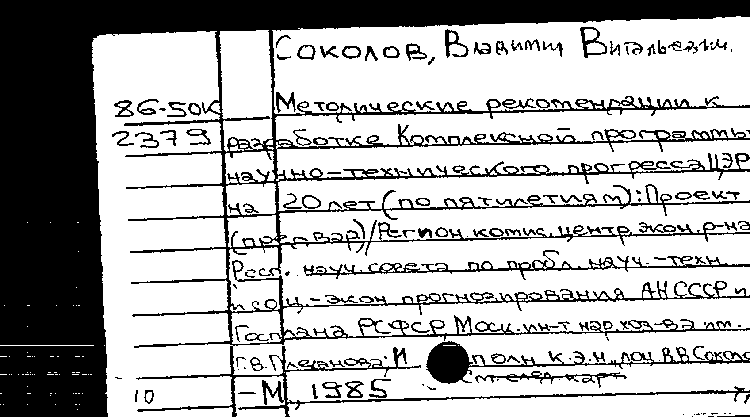 Соколов, Владимир Витальевич.
86-50К Методические рекомендации к
2379 разработке Комплексной программы
научно-технического прогресса ЦЭР
на 20 лет (по пятилетиям): Проект
(предвар) / Регион. комис. центр. экон. р-на
Респ. науч. совета по пробл. науч.-техн.
и соц.-экон прогнозирования АН СССР и
Госплана РСФСР, Моск. ин-т нар. хоз-ва им.
Г.В. Плеханова; И полн к.э.н., доц. В.В. Соколо
см. след. карт
10 -М, 1985